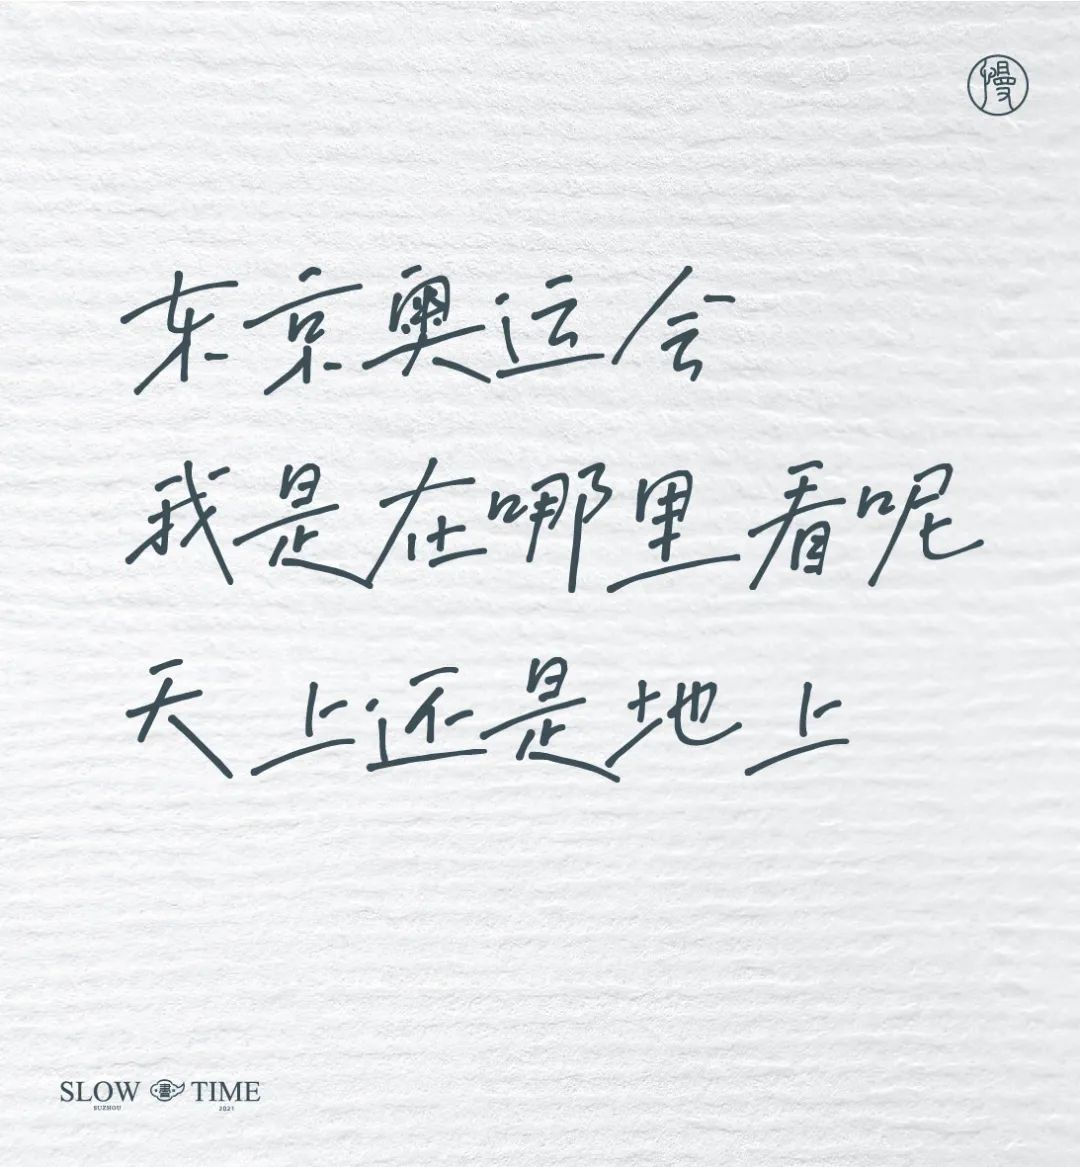 慢
东京奥运会
我是在哪里看呢
天上还是地上
SLOW 書 TIME
SUZHOU 2021